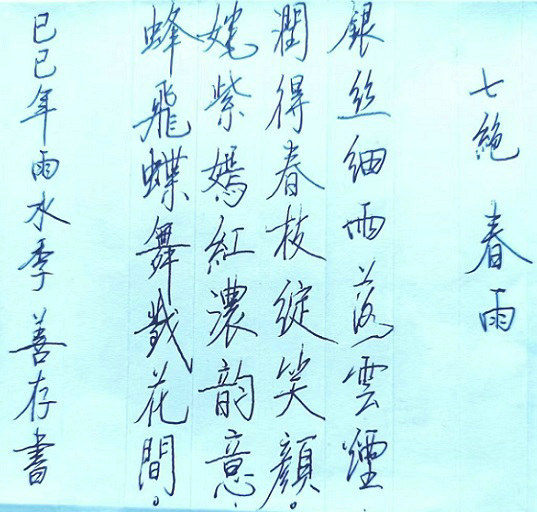 七絶 春雨
銀丝细雨落雲煙
潤得春枝绽笑顏。
姹紫嫣紅濃韵意
蜂飛蝶舞戲花間。
己巳年雨水季善存書